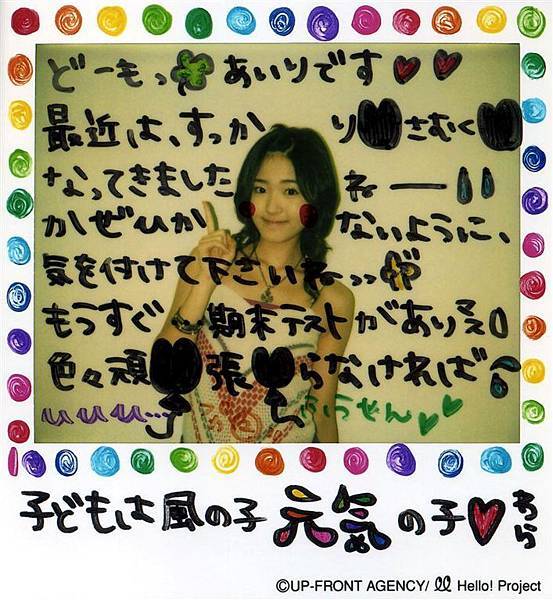 どーもっ あいりです♥♥
最近は、すっかり さむく
なってきましたねー!!
かぜひかないように、
気を付けて下さいねっっ
もうすぐ期末テストがあり〼
色々頑張らなければ
ふうせん♥♥
子どもは風の子元気の子♥
©UP-FRONT AGENCY/ Hello! Project